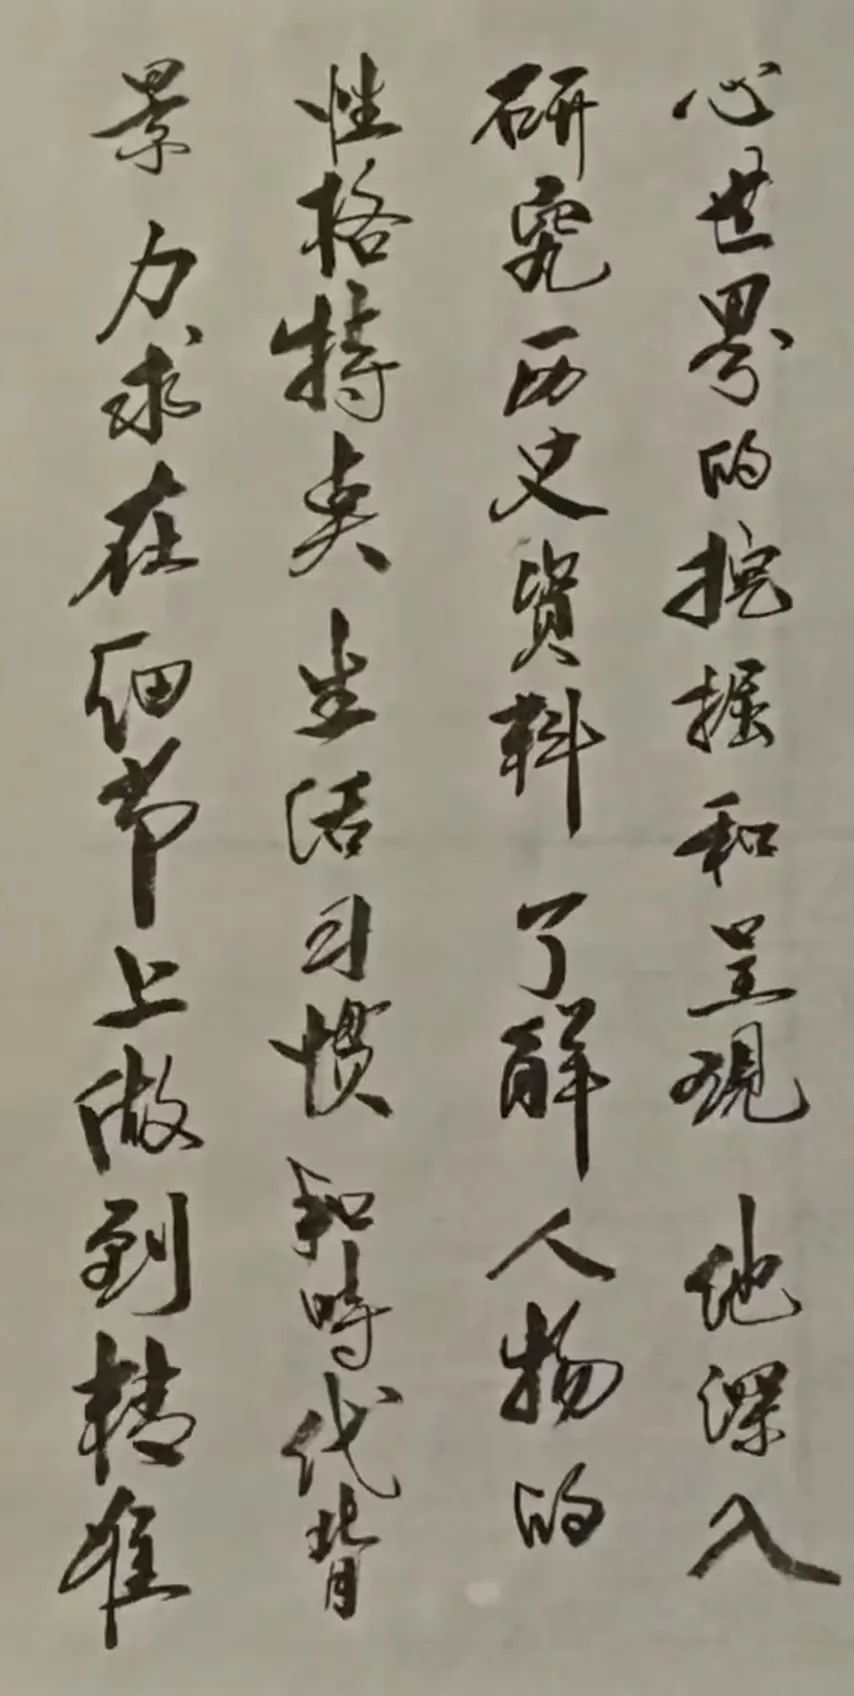 心世界的挖掘和呈现 他深入
研究历史资料 了解人物的
性格特点 生活习惯 和時代背
景 力求在细节上做到精准